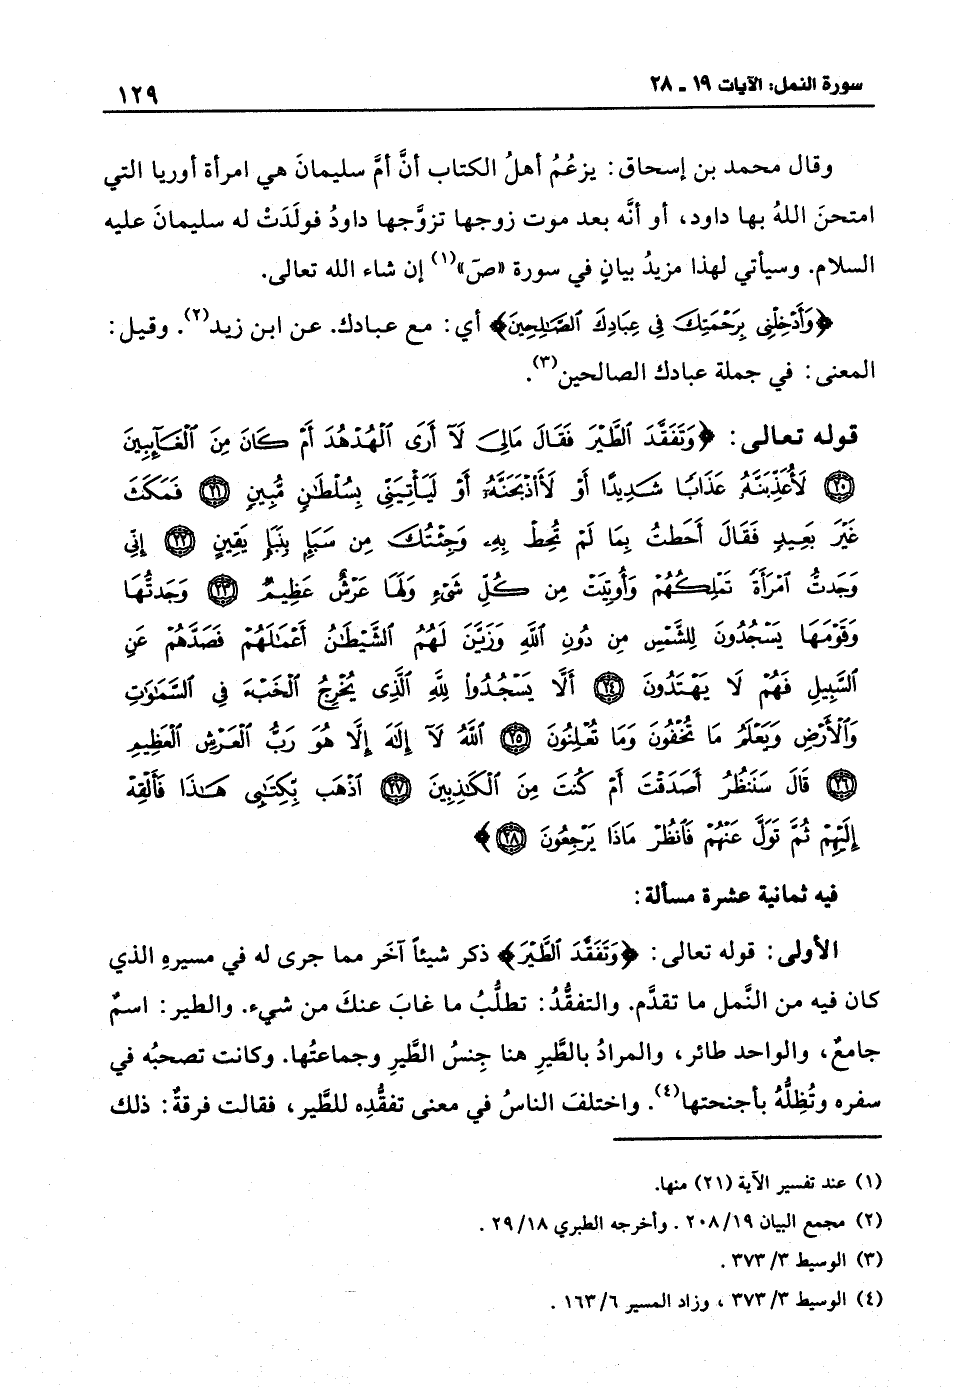 سورة النمل: الآيات ١٩ - ٢٨
١٢٩
وقال محمد بن إسحاق: يزعُمُ أهلُ الكتاب أنَّ أمَّ سليمانَ هي امرأة أوريا التي
امتحنَ اللهُ بها داود، أو أنَّه بعد موت زوجها تزوَّجها داودُ فولَدَتْ له سليمانَ عليه
السلام. وسيأتي لهذا مزيدُ بيانٍ في سورة «صَ»(١) إن شاء الله تعالى.
﴿وَأَدْخِلْنِى بِرَحْمَتِكَ فِى عِبَادِكَ ٱلصَّٰلِحِينَ﴾ أي: مع عبادك. عن ابن زيد(٢). وقيل:
المعنى: في جملة عبادك الصالحين(٣).
قوله تعالى: ﴿وَتَفَقَّدَ ٱلطَّيْرَ فَقَالَ مَالِىَ لَآ أَرَى ٱلْهُدْهُدَ أَمْ كَانَ مِنَ ٱلْغَآئِبِينَ
۝٢٠ لَأُعَذِّبَنَّهُۥ عَذَابًا شَدِيدًا أَوْ لَأَا۟ذْبَحَنَّهُۥٓ أَوْ لَيَأْتِيَنِّى بِسُلْطَٰنٍ مُّبِينٍ ۝٢١ فَمَكَثَ
غَيْرَ بَعِيدٍ فَقَالَ أَحَطتُ بِمَا لَمْ تُحِطْ بِهِۦ وَجِئْتُكَ مِن سَبَإٍ بِنَبَإٍ يَقِينٍ ۝٢٢ إِنِّى
وَجَدتُّ ٱمْرَأَةً تَمْلِكُهُمْ وَأُوتِيَتْ مِن كُلِّ شَىْءٍ وَلَهَا عَرْشٌ عَظِيمٌ ۝٢٣ وَجَدتُّهَا
وَقَوْمَهَا يَسْجُدُونَ لِلشَّمْسِ مِن دُونِ ٱللَّهِ وَزَيَّنَ لَهُمُ ٱلشَّيْطَٰنُ أَعْمَٰلَهُمْ فَصَدَّهُمْ عَنِ
ٱلسَّبِيلِ فَهُمْ لَا يَهْتَدُونَ ۝٢٤ أَلَّا يَسْجُدُوا۟ لِلَّهِ ٱلَّذِى يُخْرِجُ ٱلْخَبْءَ فِى ٱلسَّمَٰوَٰتِ
وَٱلْأَرْضِ وَيَعْلَمُ مَا تُخْفُونَ وَمَا تُعْلِنُونَ ۝٢٥ ٱللَّهُ لَآ إِلَٰهَ إِلَّا هُوَ رَبُّ ٱلْعَرْشِ ٱلْعَظِيمِ
۝٢٦ قَالَ سَنَنظُرُ أَصَدَقْتَ أَمْ كُنتَ مِنَ ٱلْكَٰذِبِينَ ۝٢٧ ٱذْهَب بِّكِتَٰبِى هَٰذَا فَأَلْقِهْ
إِلَيْهِمْ ثُمَّ تَوَلَّ عَنْهُمْ فَٱنظُرْ مَاذَا يَرْجِعُونَ ۝٢٨﴾
فيه ثمانية عشرة مسألة:
الأولى: قوله تعالى: ﴿وَتَفَقَّدَ ٱلطَّيْرَ﴾ ذكر شيئاً آخَر مما جرى له في مسيرهِ الذي
كان فيه من النَّمل ما تقدَّم. والتفقُّدُ: تطلُّبُ ما غابَ عنكَ من شيء. والطير: اسمٌ
جامعٌ، والواحد طائر، والمرادُ بالطَّيرِ هنا جِنسُ الطَّيرِ وجماعتُها. وكانت تصحبُه في
سفره وتُظِلُّهُ بأجنحتها(٤). واختلفَ الناسُ في معنى تفقُّدِه للطَّير، فقالت فرقةٌ: ذلك
(١) عند تفسير الآية (٢١) منها.
(٢) مجمع البيان ٢٠٨/١٩ . وأخرجه الطبري ٢٩/١٨ .
(٣) الوسيط ٣٧٣/٣ .
(٤) الوسيط ٣٧٣/٣ ، وزاد المسير ١٦٣/٦ .